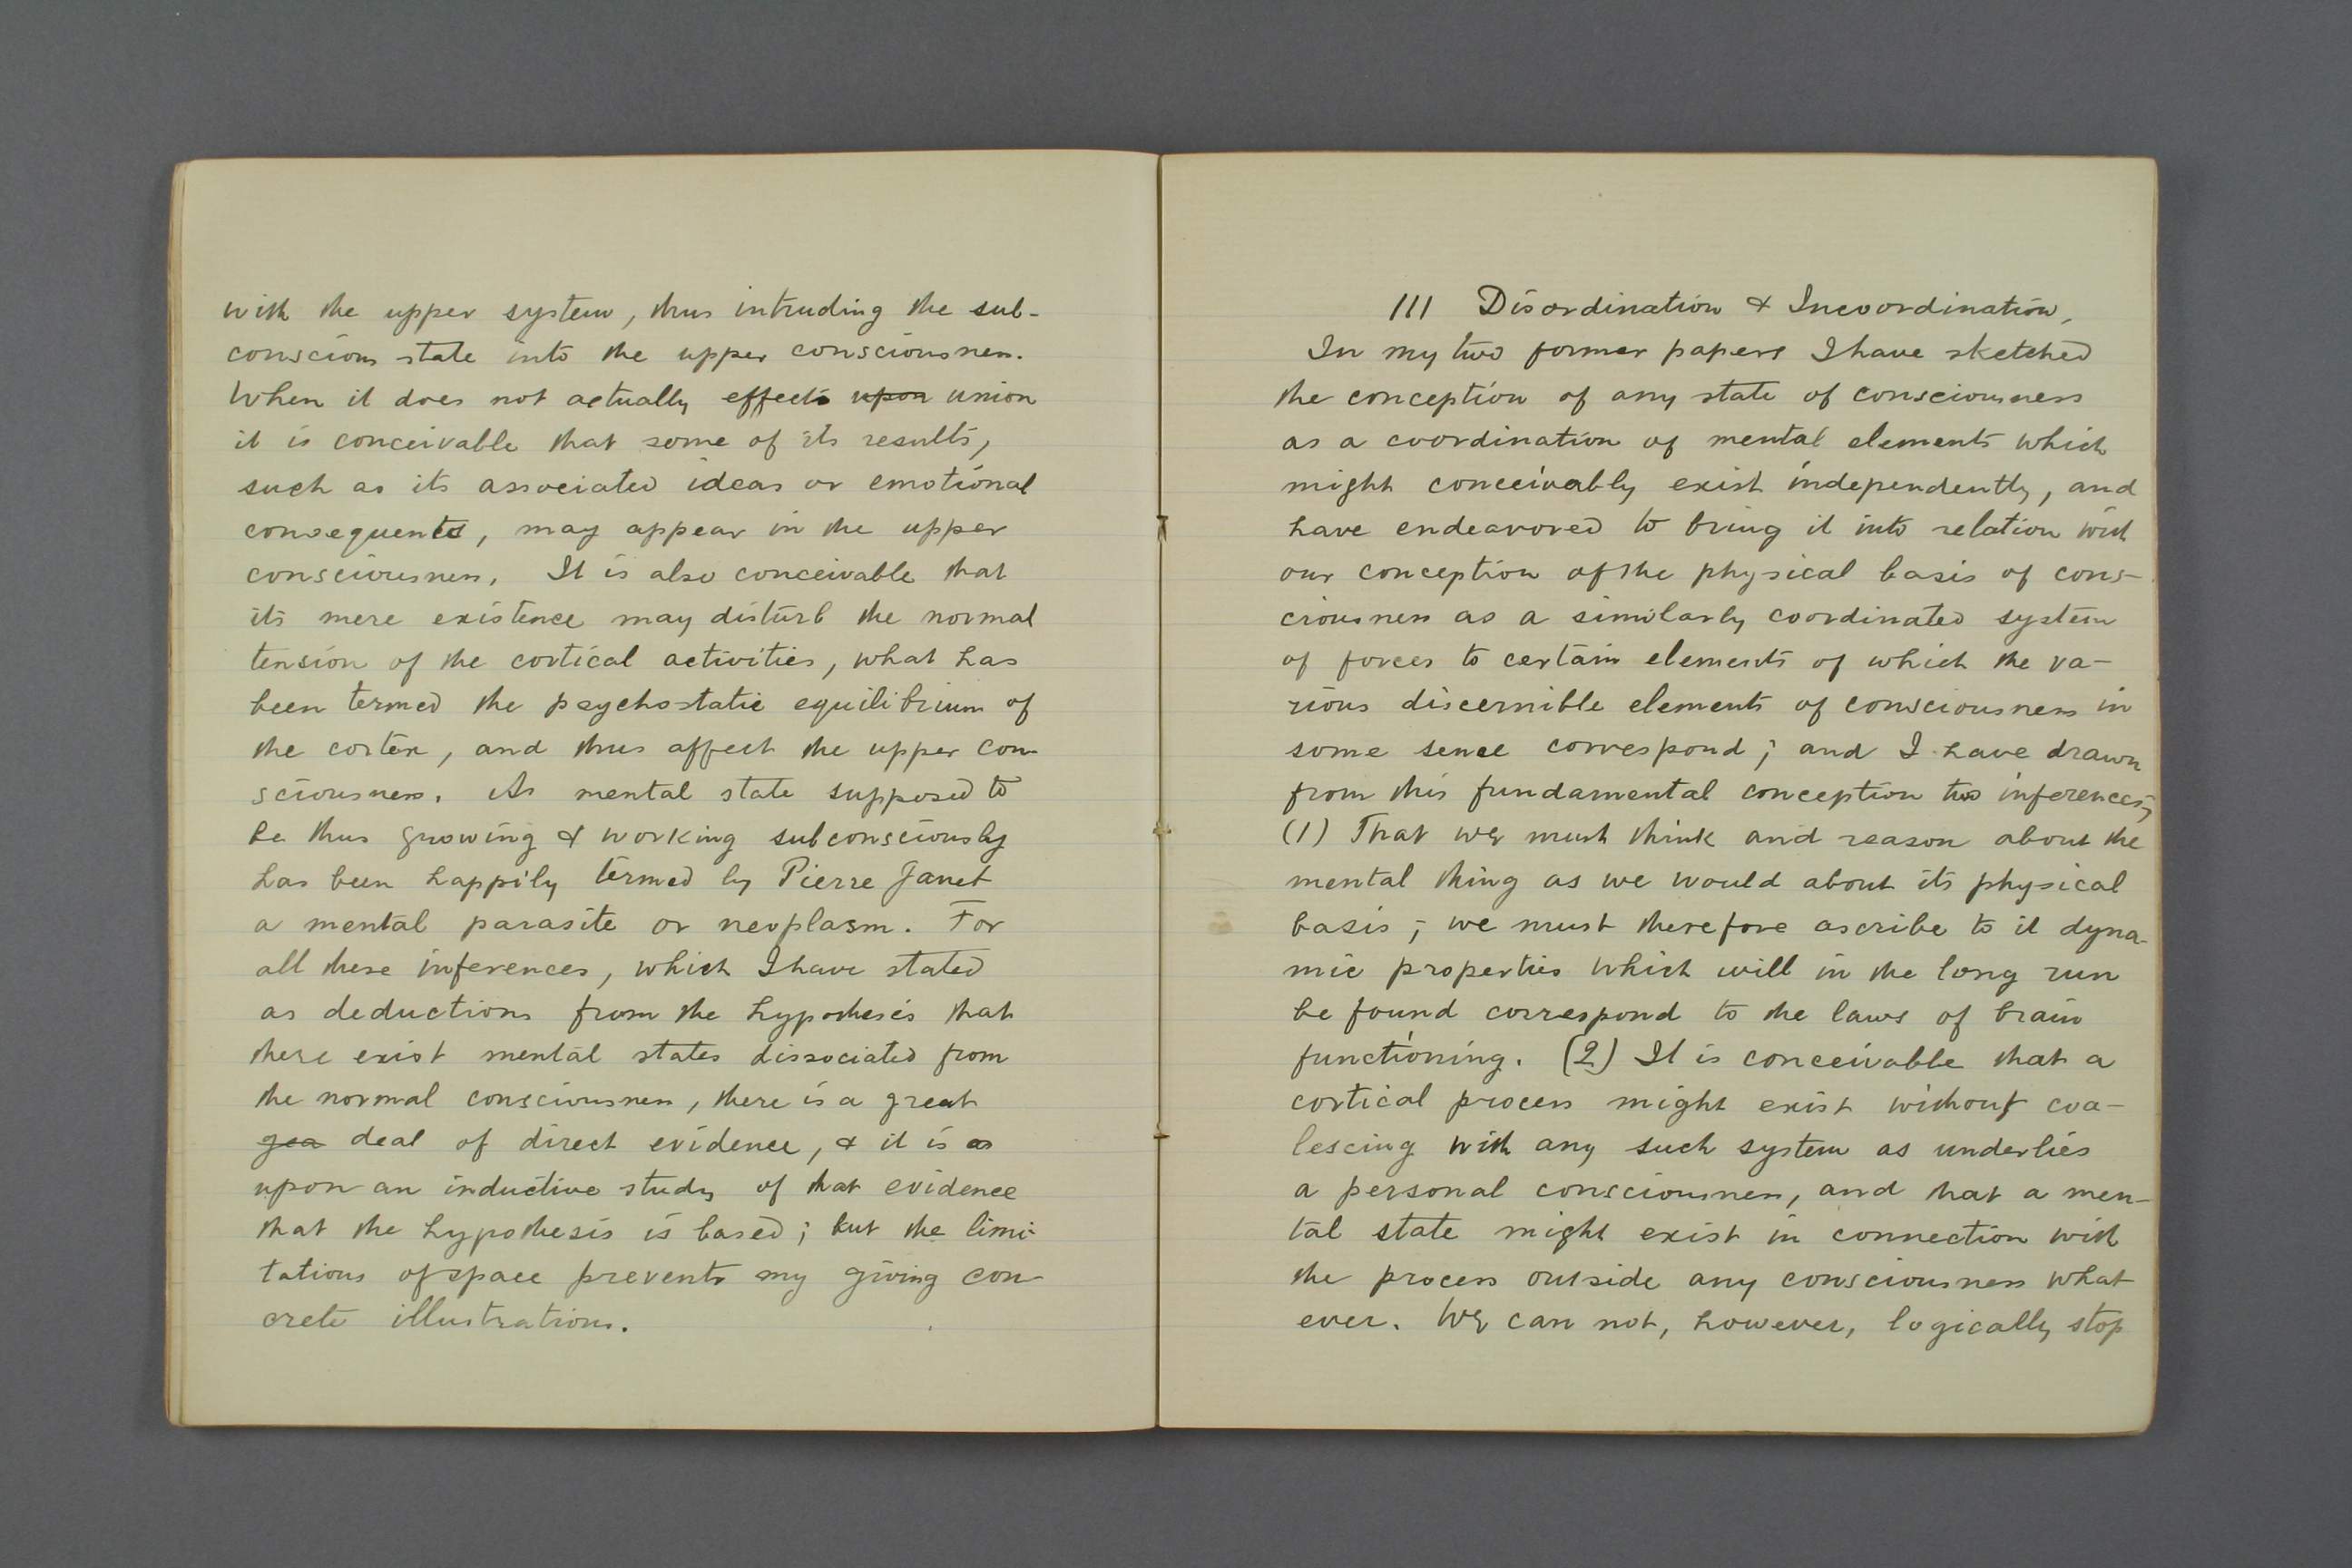 with the upper system, thus intruding the sub-
conscious state into the upper consciousness.
When it does not actually effects upon union
it is conceivable that some of its results,
such as its associated ideas or emotional
consequents, may appear in the upper
consciousness. It is also conceivable that
its mere existence may disturb the normal
tension of the cortical activities, what has
been termed the psychostatic equilibrium of
the cortex, and thus affect the upper con-
sciousness. A mental state supposed to
be thus growing & working subconsciously
has been happily termed by Pierre Janet
a mental parasite or neoplasm. For
all these inferences, which I have stated
as deductions from the hypothesis that
there exist mental states dissociated from
the normal consciousness, there is a great
gea deal of direct evidence, & it is as
upon an inductive study of that evidence
that the hypothesis is based; but the limi-
tations of space prevents my giving con-
crete illustrations.
III Disordination & Incoordination,
In my two former papers I have sketched
the conception of any state of consciousness
as a coordination of mental elements which
might conceivably exist independently, and
have endeavored to bring it into relation with
our conception of the physical basis of cons-
ciousness as a similarly coordinated system
of forces to certain elements of which the va-
rious discernible elements of consciousness in
some sence correspond; and I have drawn
from this fundamental conception two inferences;
(1) That we must think and reason about the
mental thing as we would about its physical
basis; we must therefore ascribe to it dyna-
mic properties which will in the long run
be found correspond to the laws of brain
functioning. (2) It is conceivable that a
cortical process might exist without coa-
lescing with any such system as underlies
a personal consciousness, and that a men-
tal state might exist in connection with
the process outside any consciousness what
ever. We can not, however, logically stop